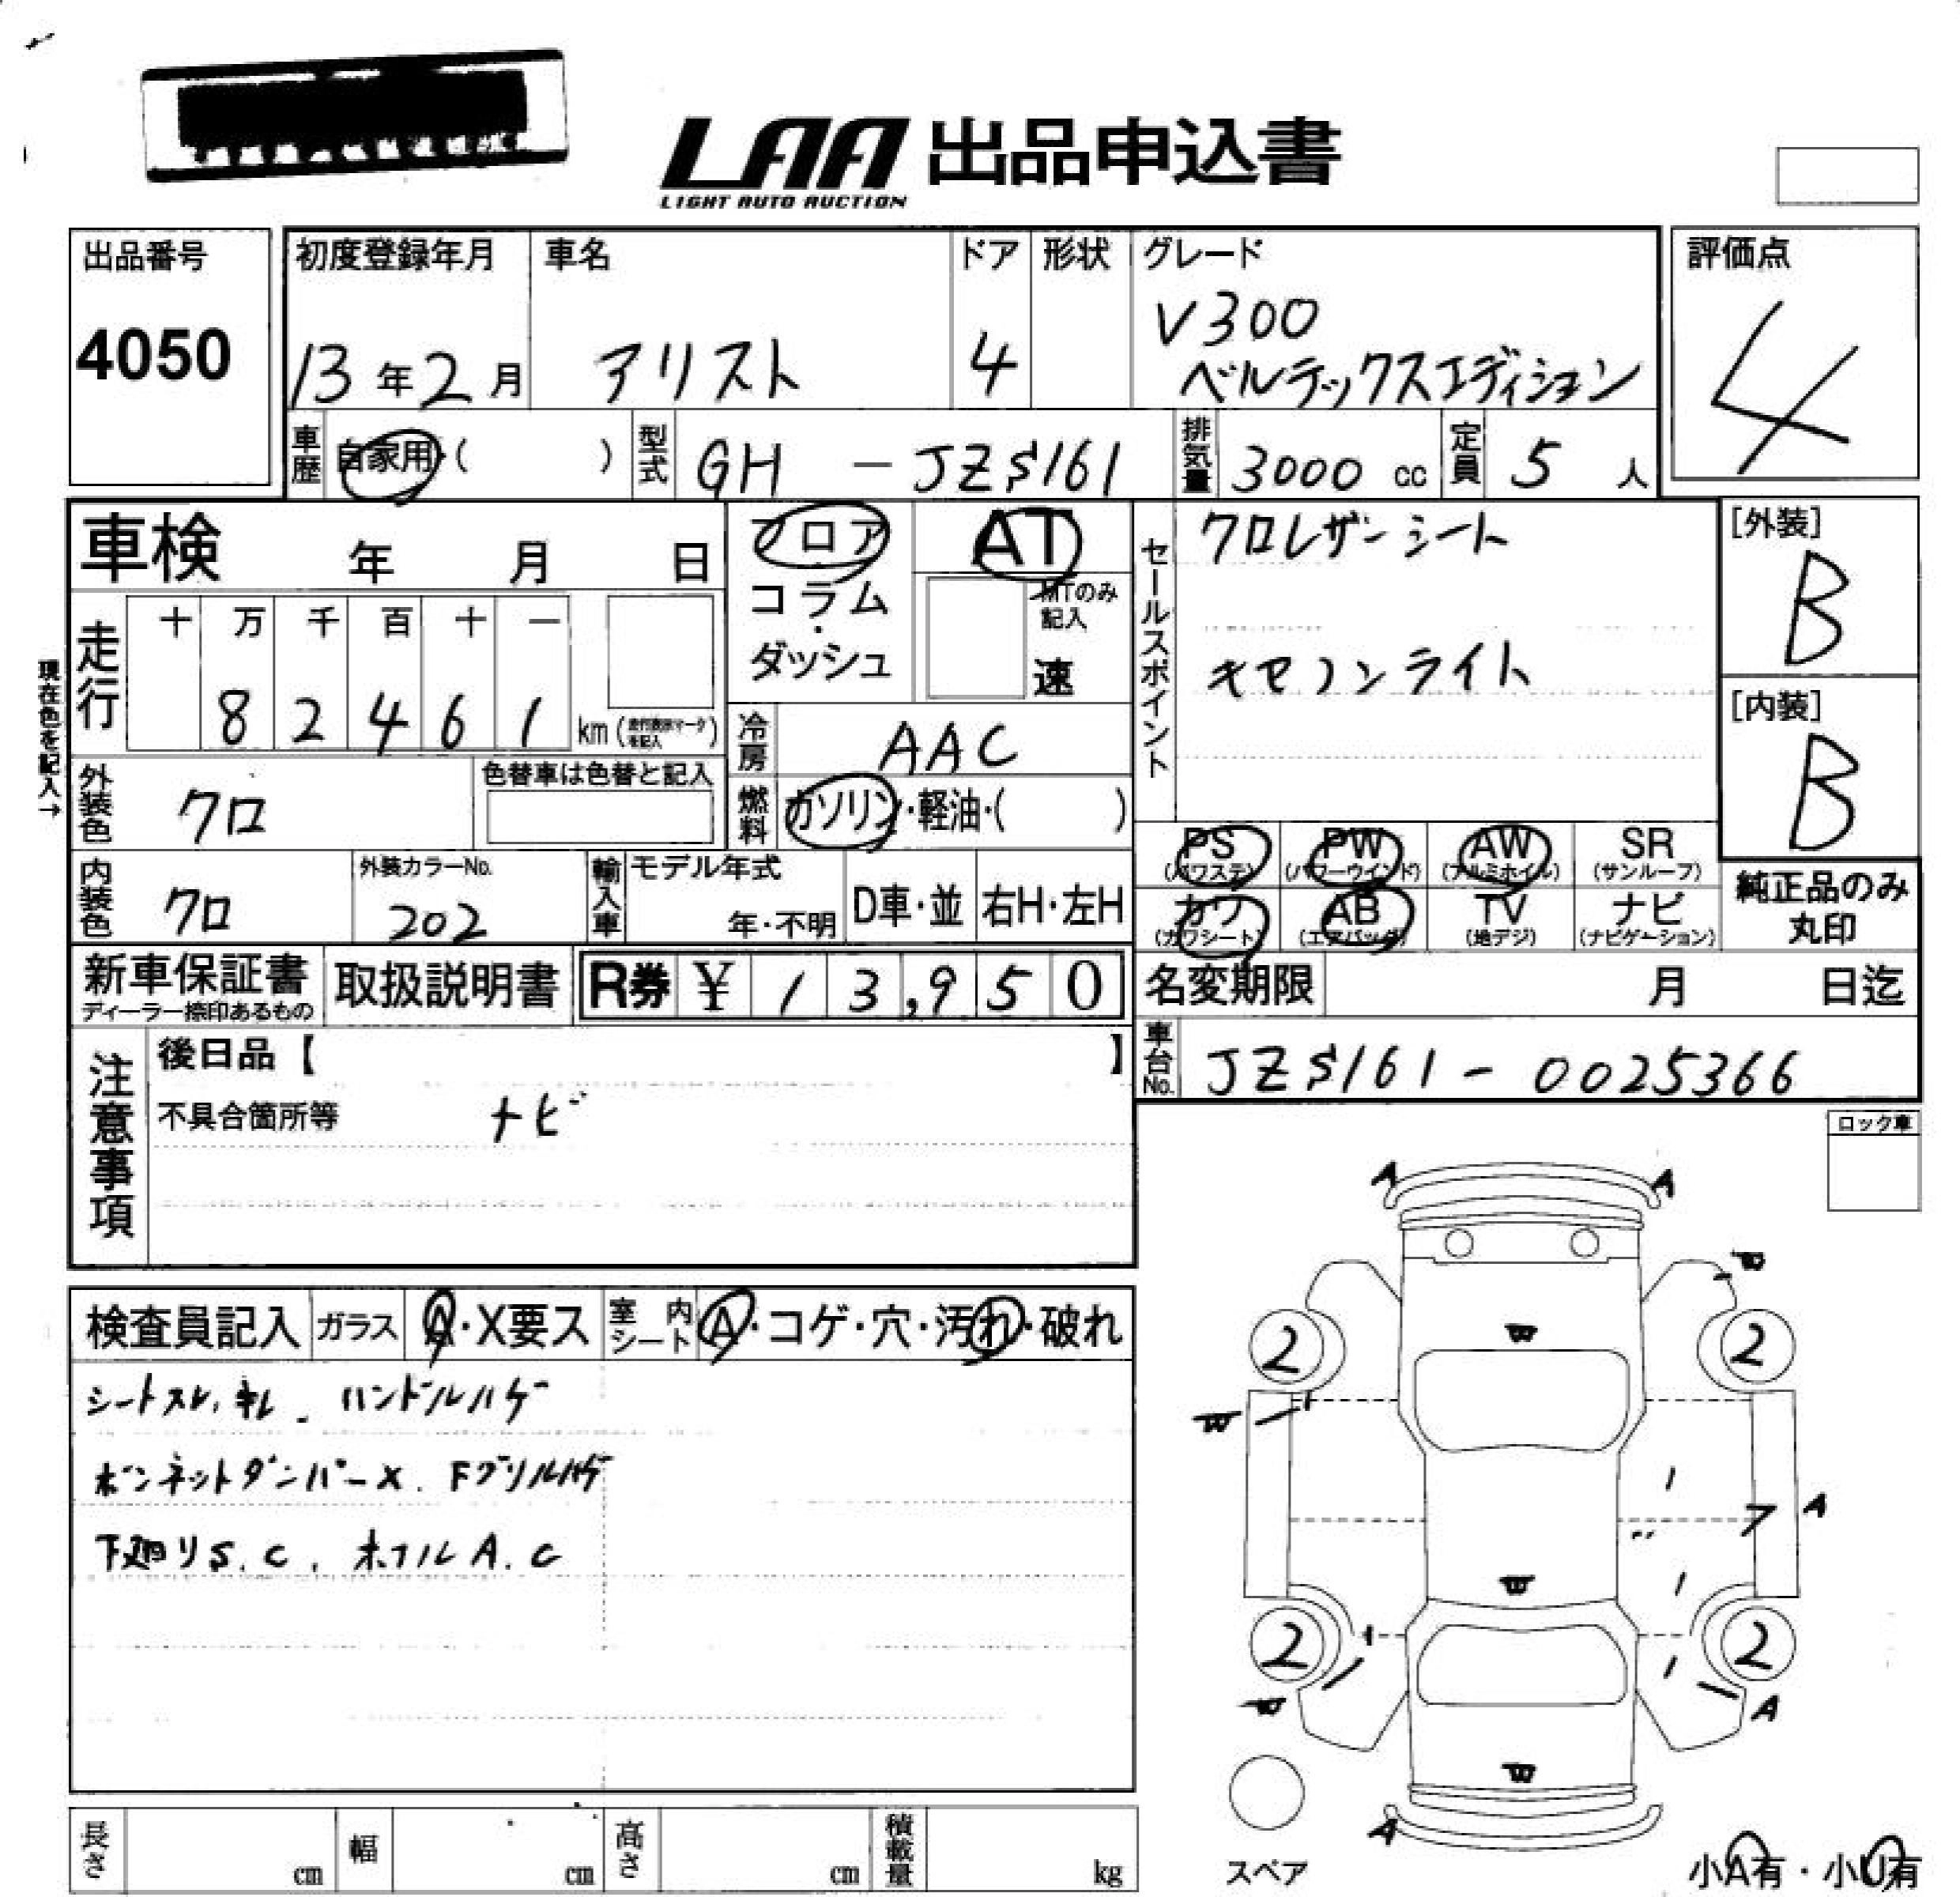 LAA 出品申込書
LIGHT AUTO AUCTION
出品番号
4050
初度登録年月
13年2月
車名
アリスト
ドア
4
形状
グレード
V300
ベルテックスエディション
評価点
4
車歴
自家用・( )
型式
GH - JZS161
排気量
3000 cc
定員
5 人
車検 年 月 日
フロア
コラム・
ダッシュ
AT
MTのみ
記入
速
セールスポイント
クロレザーシート
キセノンライト
[外装]
B
[内装]
B
現在色を記入→
走行
十 万 千 百 十 一
8 2 4 6 1 km
冷房
AAC
外装色
クロ
色替車は色替と記入
燃料
ガソリン・軽油・( )
PS
(パワステ)
PW
(パワーウインド)
AW
(アルミホイル)
SR
(サンルーフ)
内装色
クロ
外装カラーNo.
202
輸入車
モデル年式
年・不明
D車・並
右H・左H
カワ
(カワシート)
AB
(エアバッグ)
TV
(地デジ)
ナビ
(ナビゲーション)
純正品のみ
丸印
新車保証書
ディーラー捺印あるもの
取扱説明書
R券 ¥ 13,950
名変期限 月 日迄
車台No.
JZS161-0025366
注意事項
後日品【 】
不具合箇所等 ナビ
ロック車
検査員記入
ガラス
A・X要ス
室内シート
A・コゲ・穴・汚れ・破れ
シートスレ、キレ、ハンドルハゲ
ボンネットダンパーX、Fグリルハゲ
下廻りS.C、ホイルA.C
A A
2 2
A
2 2
A
A
スペア
小A有・小U有
長さ cm
幅 cm
高さ cm
積載量 kg